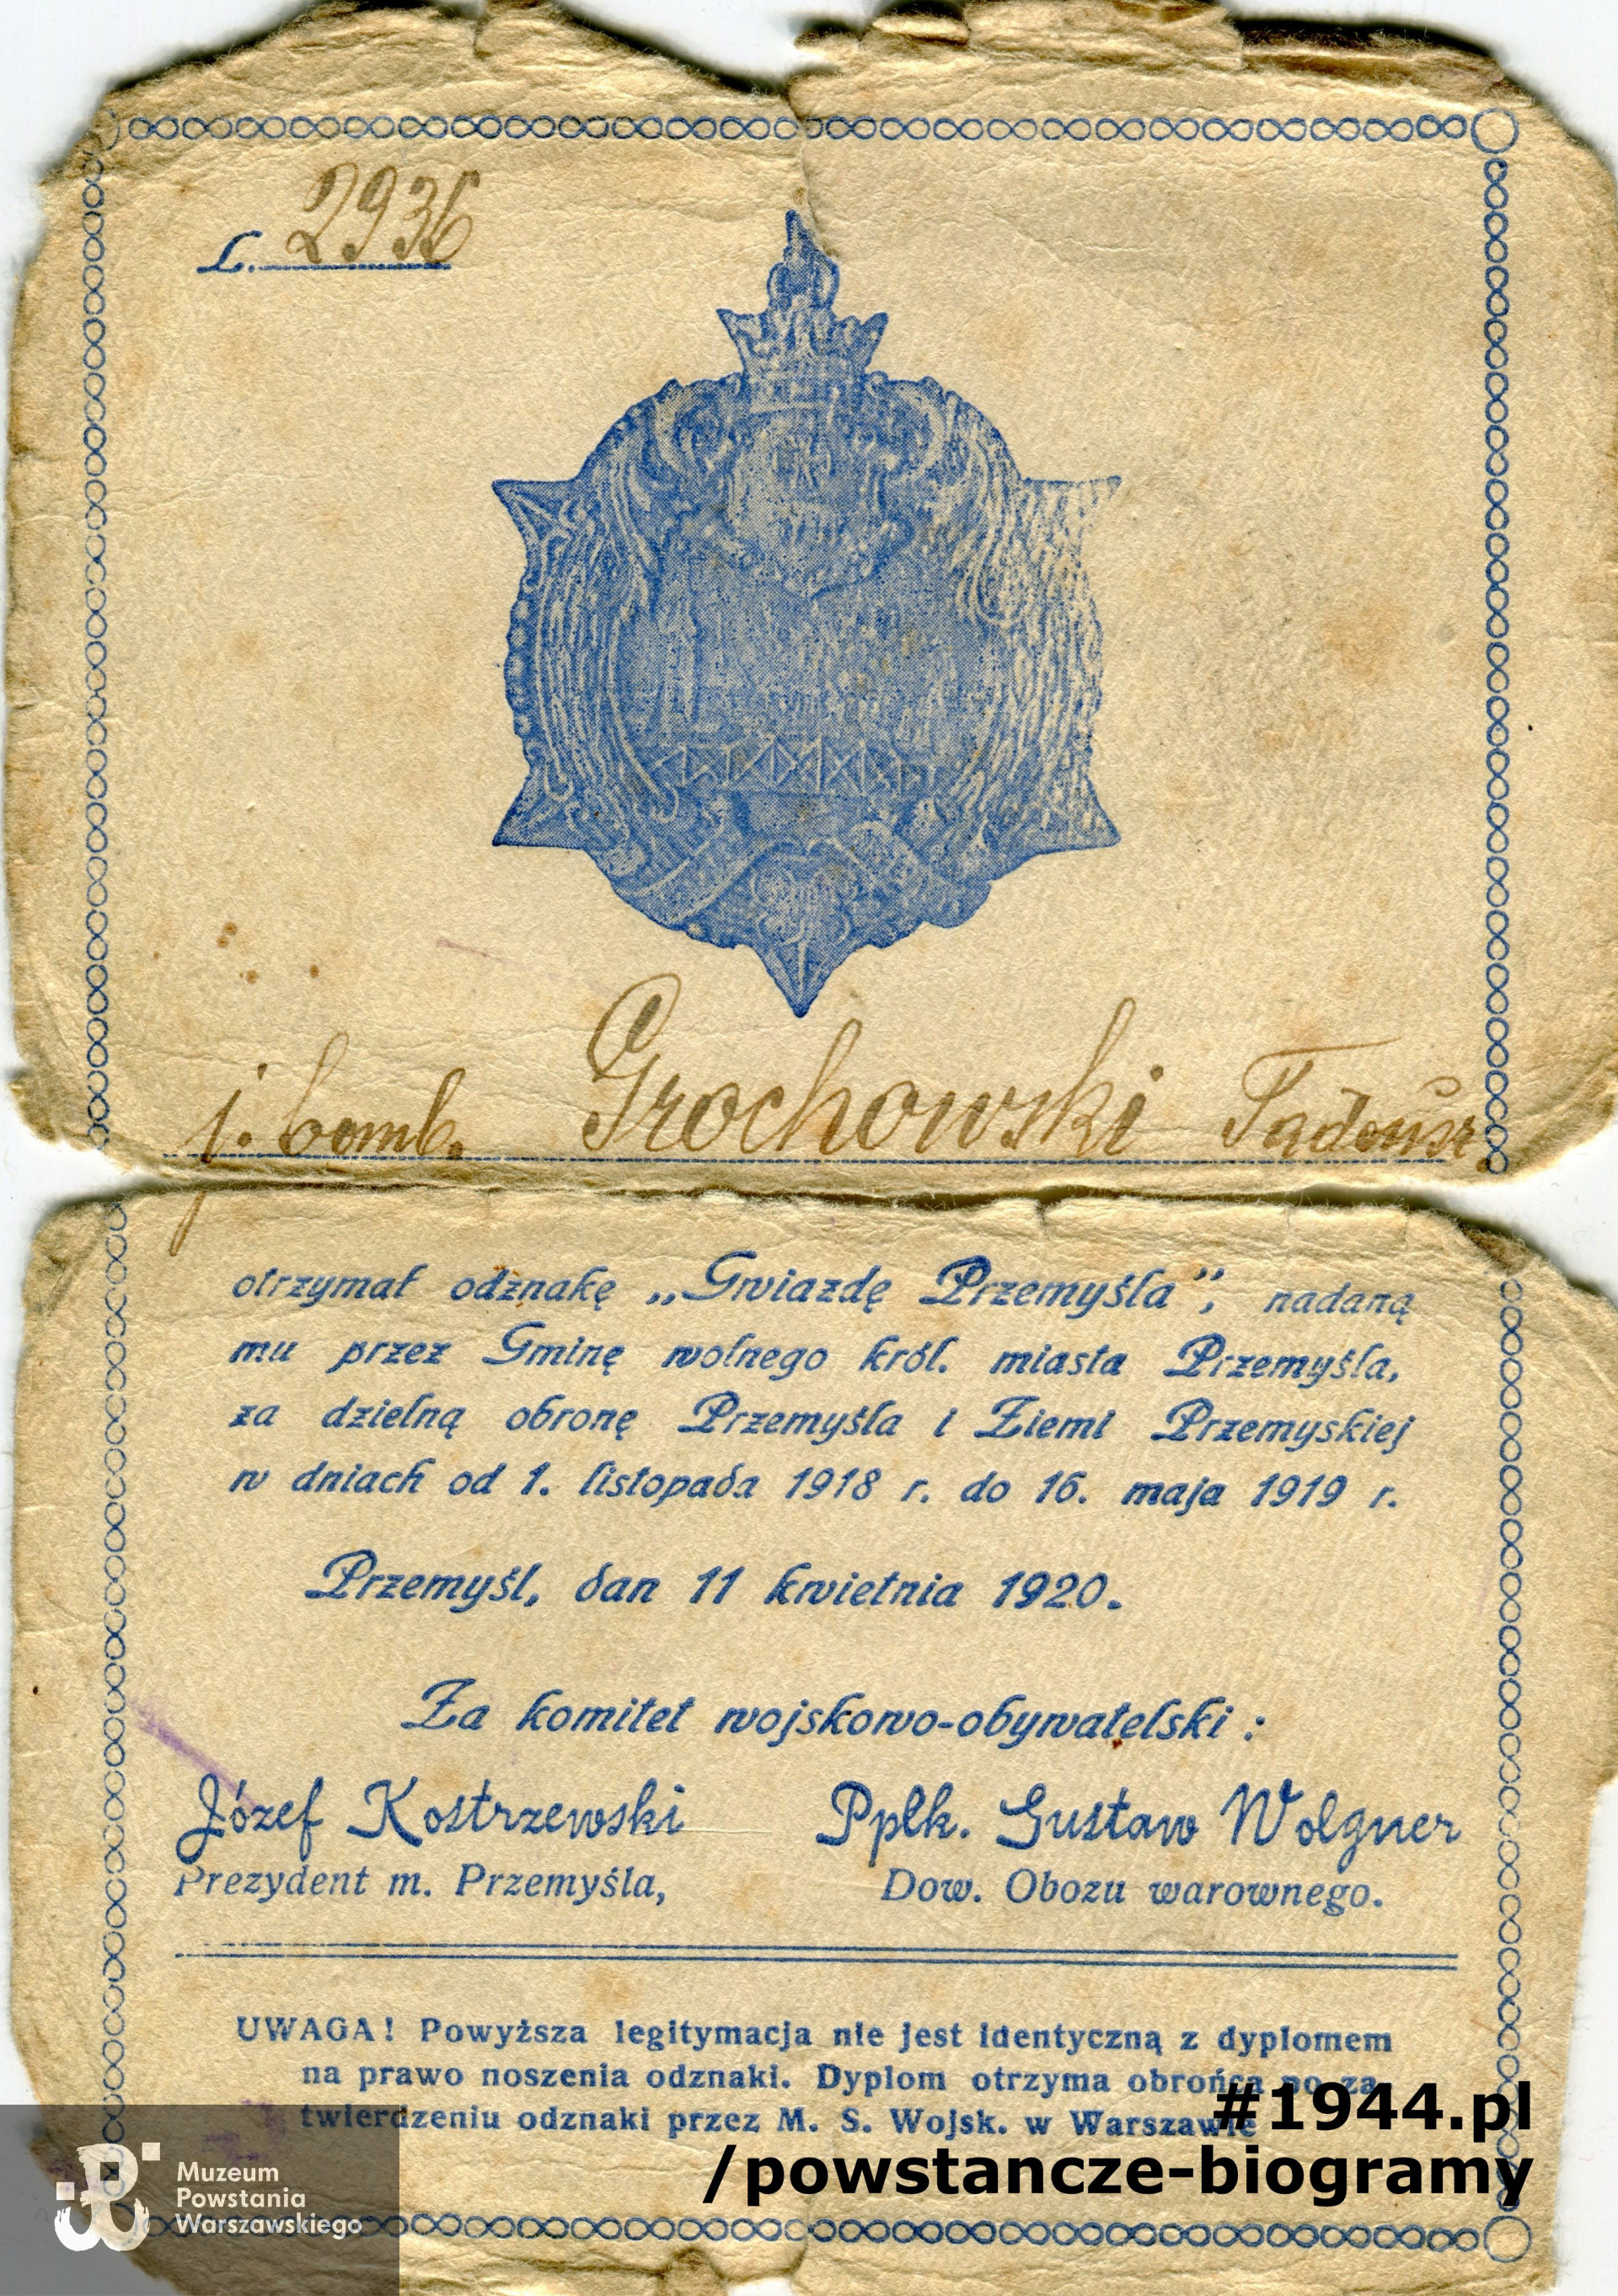 L. 2936
j. bomb. Grochowski Tadeusz
otrzymał odznakę „Gwiazdę Przemyśla”, nadaną
mu przez Gminę wolnego król. miasta Przemyśla,
za dzielną obronę Przemyśla i Ziemi Przemyskiej
w dniach od 1. listopada 1918 r. do 16. maja 1919 r.
Przemyśl, dan 11 kwietnia 1920.
Za komitet wojskowo-obywatelski :
Józef Kostrzewski Ppłk. Gustaw Wolgner
Prezydent m. Przemyśla, Dow. Obozu warownego.
UWAGA! Powyższa legitymacja nie jest identyczną z dyplomem
na prawo noszenia odznaki. Dyplom otrzyma obrońca po za-
twierdzeniu odznaki przez M. S. Wojsk. w Warszawie
#1944.pl
/powstancze-biogramy
Muzeum
Powstania
Warszawskiego